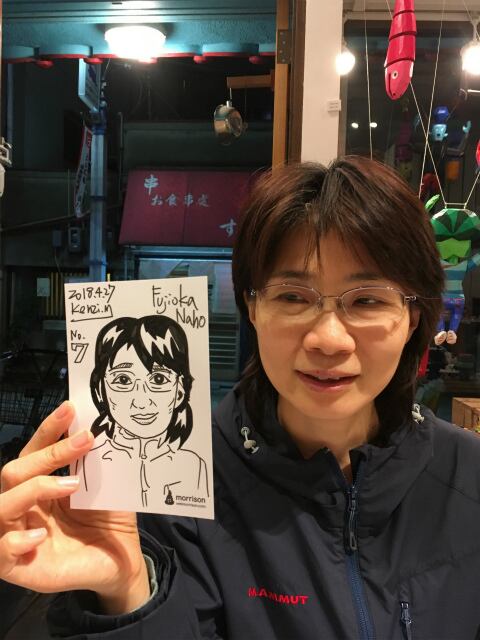 串
お食事処
す
2018.4.27
Kenzi.M
Fujioka
Naho
No.
7
morrison
MAMMUT